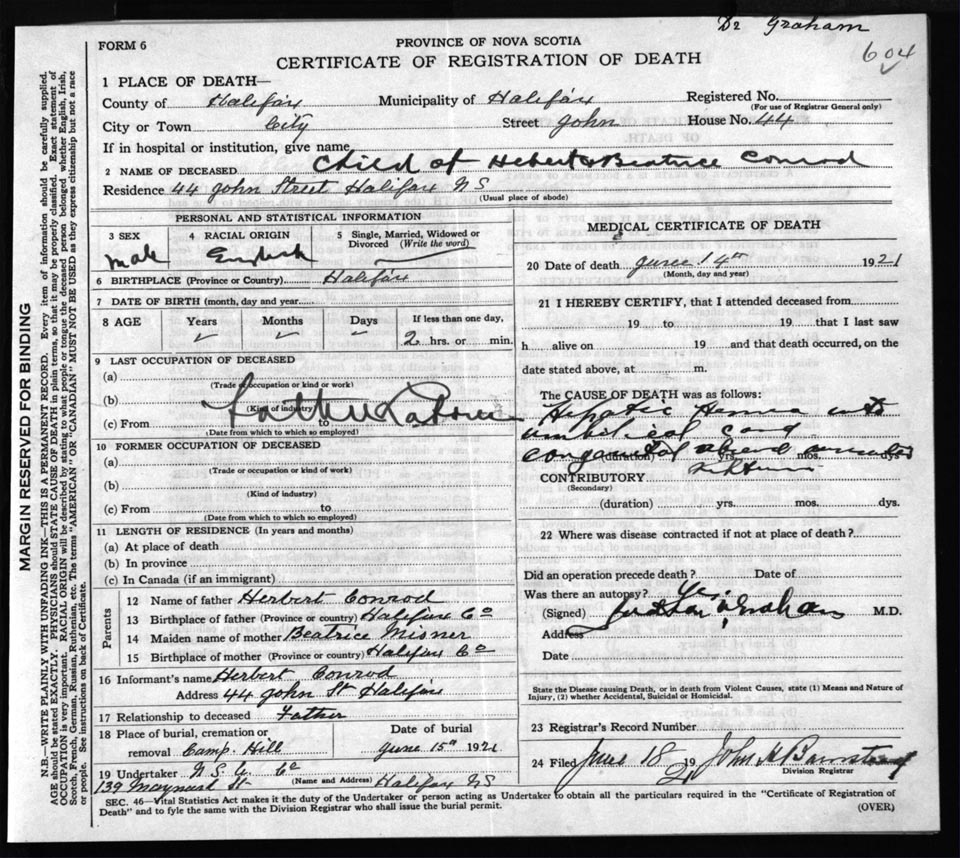 Dr Graham
604
FORM 6
PROVINCE OF NOVA SCOTIA
CERTIFICATE OF REGISTRATION OF DEATH
1 PLACE OF DEATH—
County of Halifax Municipality of Halifax Registered No.
(For use of Registrar General only)
City or Town City Street John House No. 44
If in hospital or institution, give name
2 NAME OF DECEASED Child of Hebert & Beatrice Conrod
Residence 44 John Street Halifax NS
(Usual place of abode)
PERSONAL AND STATISTICAL INFORMATION
3 SEX 4 RACIAL ORIGIN 5 Single, Married, Widowed or Divorced (Write the word)
Male English
6 BIRTHPLACE (Province or Country) Halifax
7 DATE OF BIRTH (month, day and year)
8 AGE Years Months Days If less than one day,
2 hrs. or min.
9 LAST OCCUPATION OF DECEASED
(a)
(Trade or occupation or kind or work)
(b)
(Kind of industry)
(c) From to
(Date from which to which so employed)
Father Laborer
10 FORMER OCCUPATION OF DECEASED
(a)
(Trade or occupation or kind of work)
(b)
(Kind of industry)
(c) From to
(Date from which to which so employed)
11 LENGTH OF RESIDENCE (In years and months)
(a) At place of death
(b) In province
(c) In Canada (if an immigrant)
Parents
12 Name of father Herbert Conrod
13 Birthplace of father (Province or country) Halifax Co
14 Maiden name of mother Beatrice Misner
15 Birthplace of mother (Province or country) Halifax Co
16 Informant's name Herbert Conrod
Address 44 John St Halifax
17 Relationship to deceased Father
18 Place of burial, cremation or removal Camp Hill
Date of burial June 15th 1921
19 Undertaker N.S.U. Co
(Name and Address)
139 Maynard St Halifax NS
MEDICAL CERTIFICATE OF DEATH
20 Date of death June 14th 1921
(Month, day and year)
21 I HEREBY CERTIFY, that I attended deceased from
19 to 19 that I last saw
h alive on 19 and that death occurred, on the
date stated above, at m.
The CAUSE OF DEATH was as follows:
Hepatic Hernia into
umbilical cord
congenital
(duration) yrs. mos. dys.
CONTRIBUTORY
(Secondary)
(duration) yrs. mos. dys.
22 Where was disease contracted if not at place of death?
Did an operation precede death? Date of
Was there an autopsy? Yes.
(Signed) Graham M.D.
Address
Date
State the Disease causing Death, or in death from Violent Causes, state (1) Means and Nature of Injury, (2) whether Accidental, Suicidal or Homicidal.
23 Registrar's Record Number
24 Filed June 18 1921 John H Barnstead
Division Registrar
SEC. 46—Vital Statistics Act makes it the duty of the Undertaker or person acting as Undertaker to obtain all the particulars required in the "Certificate of Registration of
Death" and to fyle the same with the Division Registrar who shall issue the burial permit.
(OVER)
MARGIN RESERVED FOR BINDING
N.B.—WRITE PLAINLY WITH UNFADING INK—THIS IS A PERMANENT RECORD. Every item of information should be carefully supplied.
AGE should be stated EXACTLY. PHYSICIANS should STATE CAUSE OF DEATH in plain terms, so that it may be properly classified. Exact statement of
OCCUPATION is very important. RACIAL ORIGIN will be described by stating to what people or tongue the deceased person belonged whether English, Irish,
Scotch, French, German, Russian, Ruthenian, etc. The terms "AMERICAN" OR "CANADIAN" MUST NOT BE USED as they express citizenship but not a race
or people. See instructions on back of Certificate.